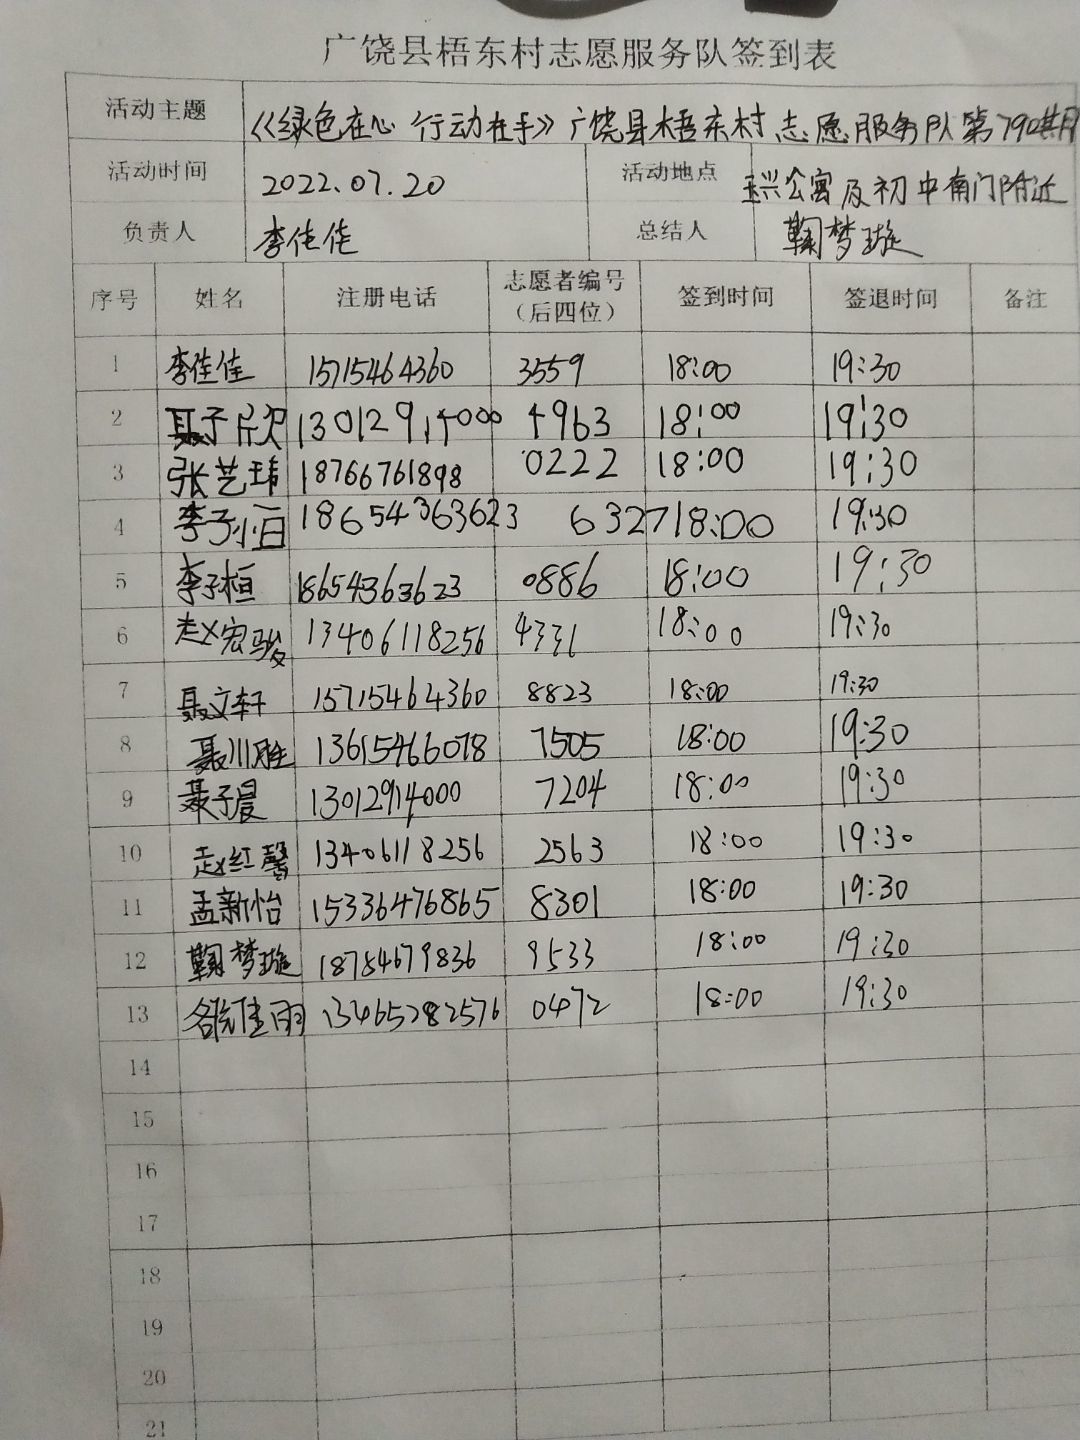 广饶县梧东村志愿服务队签到表
活动主题 《绿色在心 行动在手》广饶县梧东村志愿服务队第790期
活动时间 2022.07.20 活动地点 玉兴公寓及初中南门附近
负责人 李佳佳 总结人 鞠梦璇
序号 姓名 注册电话 志愿者编号（后四位） 签到时间 签退时间 备注
1 李佳佳 15715464360 3559 18:00 19:30
2 聂子欣 13012914000 4963 18:00 19:30
3 张艺玮 18766761898 0222 18:00 19:30
4 李子 18654363623 6327 18:00 19:30
5 李子桓 18654363623 0886 18:00 19:30
6 赵宏骏 13406118256 4331 18:00 19:30
7 聂文轩 15715464360 8823 18:00 19:30
8 聂川胜 13615466078 7505 18:00 19:30
9 聂子晨 13012914000 7204 18:00 19:30
10 赵红馨 13406118256 2563 18:00 19:30
11 孟新怡 15336476865 8301 18:00 19:30
12 鞠梦璇 18754679836 9533 18:00 19:30
13 佳雨 13465282576 0472 18:00 19:30
14
15
16
17
18
19
20
21